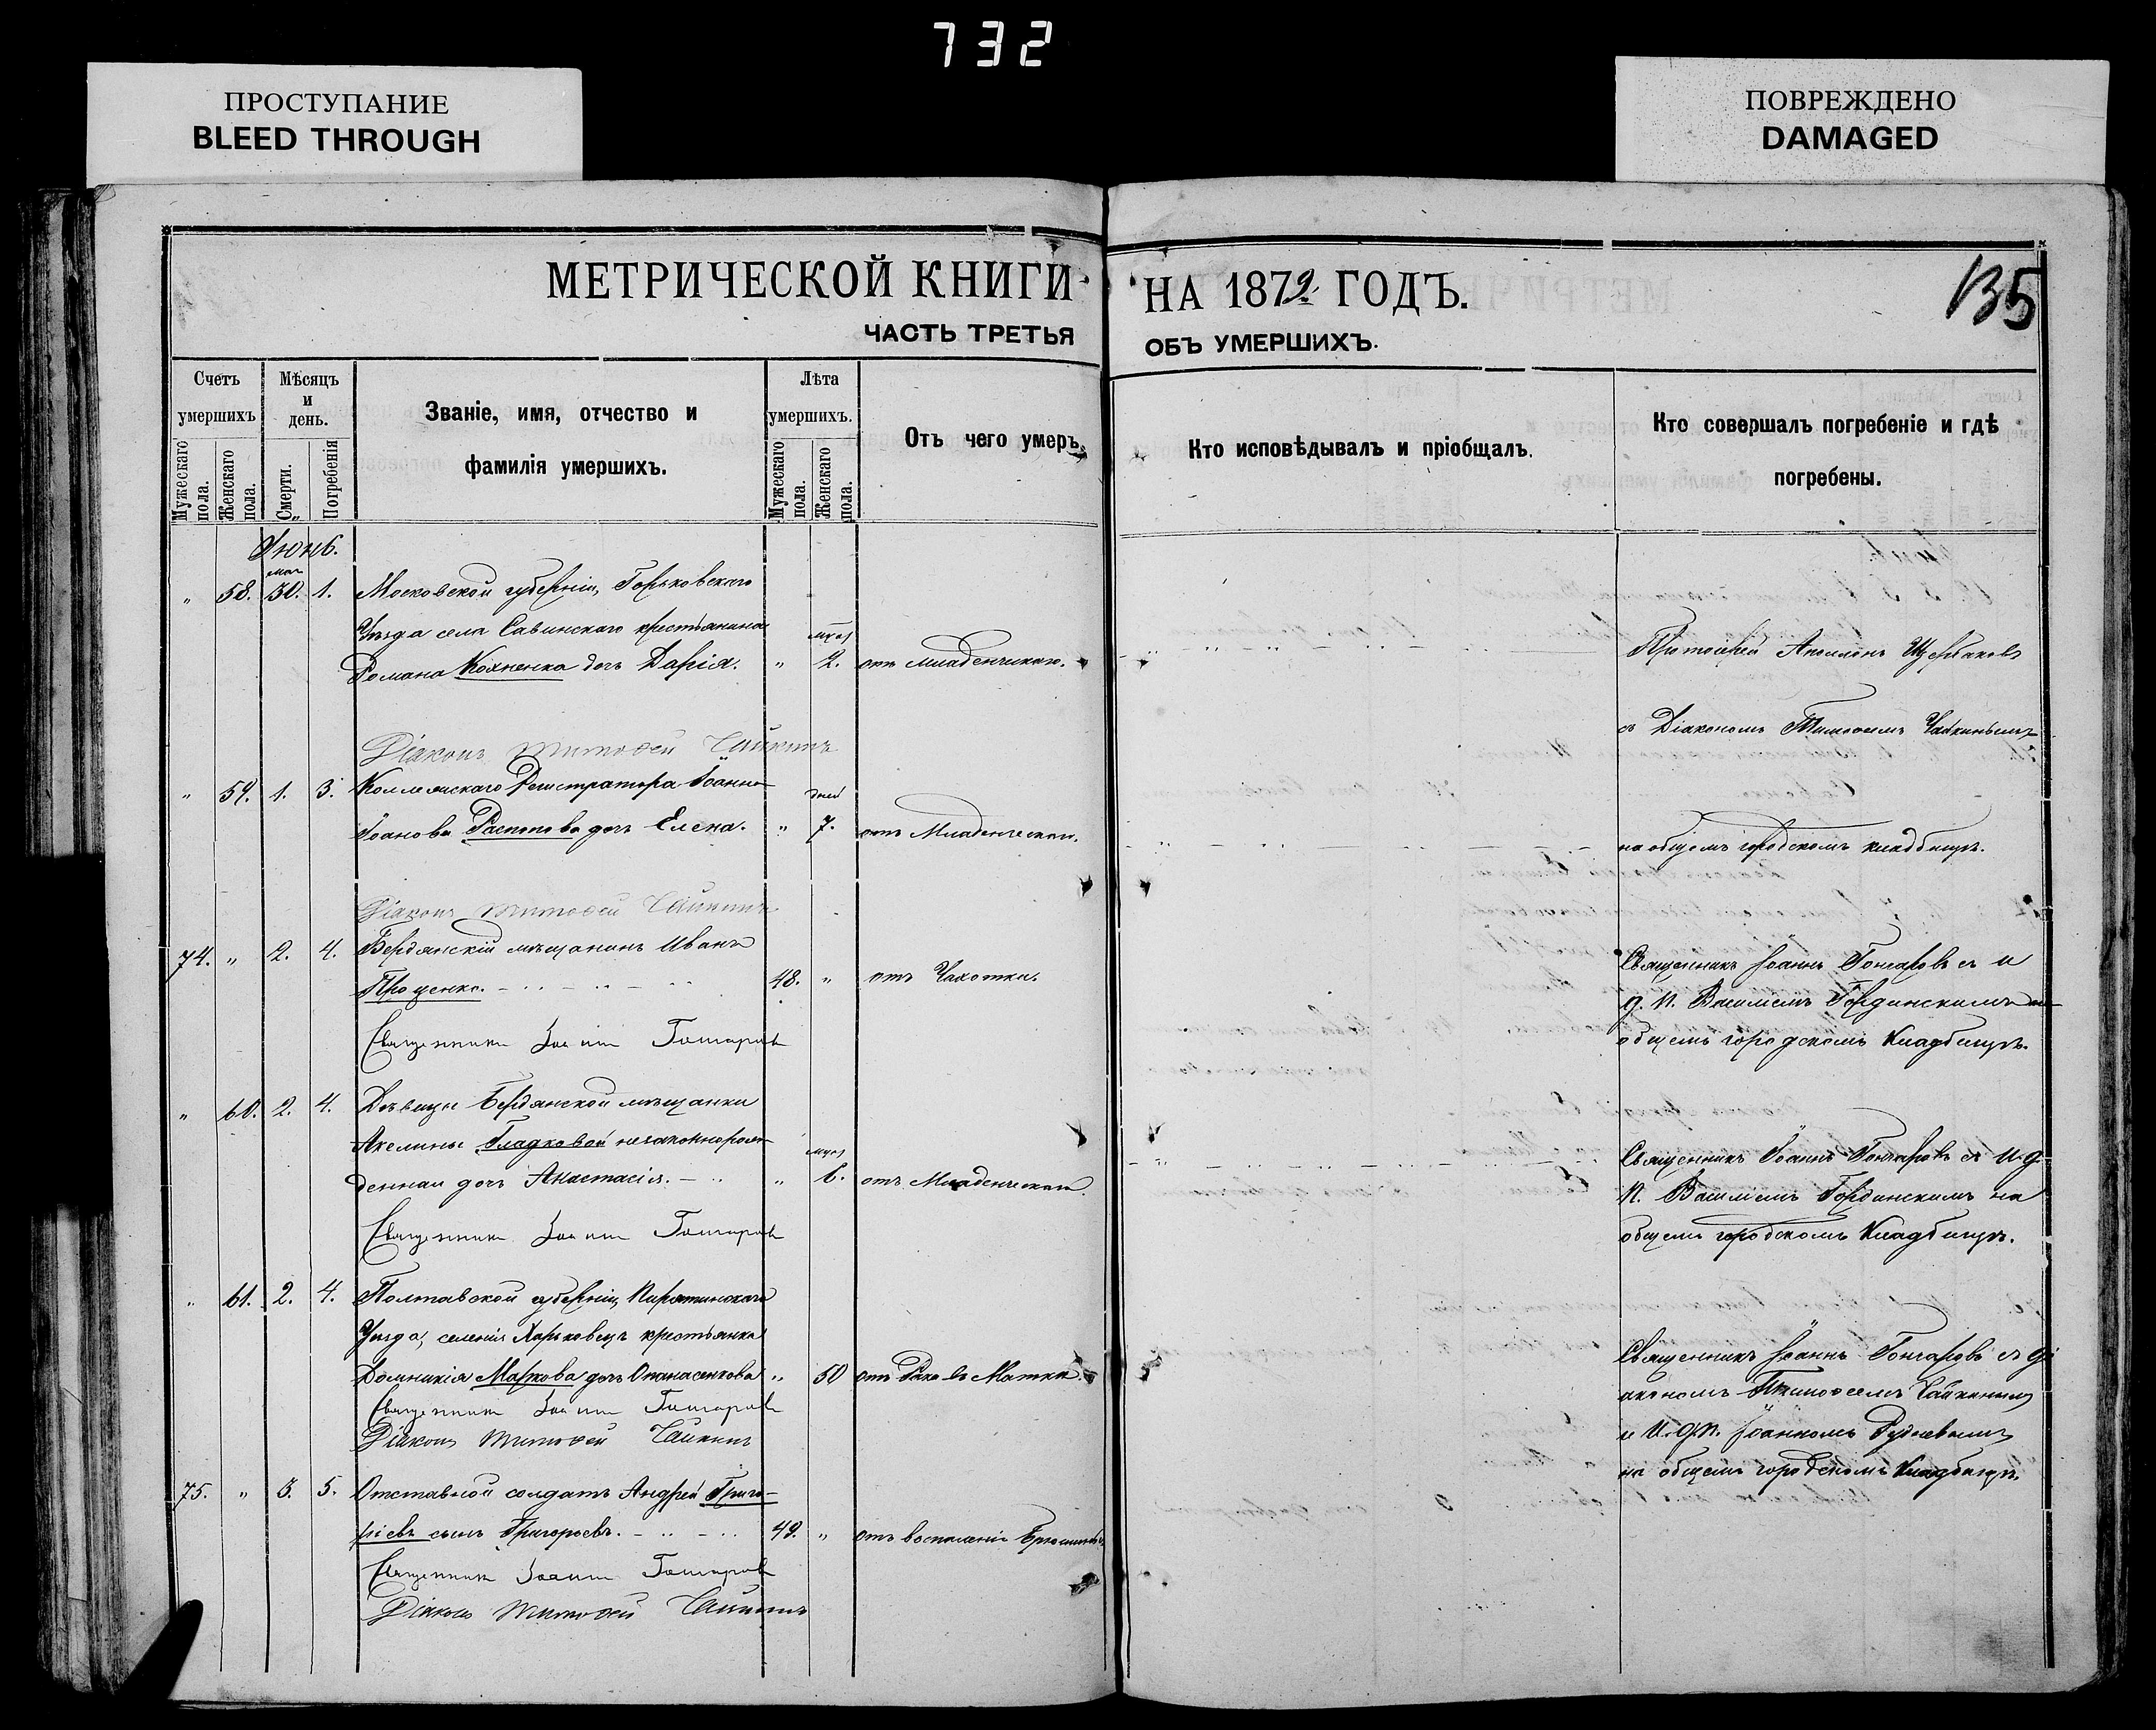 732
ПРОСТУПАНИЕ
BLEED THROUGH
ПОВРЕЖДЕНО
DAMAGED
МЕТРИЧЕСКОЙ КНИГИ
НА 1879. ГОДЪ.
135
ЧАСТЬ ТРЕТЬЯ
ОБЪ УМЕРШИХЪ.
Счетъ умершихъ
Мужескаго пола.
Женскаго пола.
Мѣсяцъ и день.
Смерти.
Погребенія
Званіе, имя, отчество и
фамилія умершихъ.
Лѣта умершихъ.
Мужескаго пола.
Женскаго пола.
Отъ чего умеръ.
Кто исповѣдывалъ и пріобщалъ.
Кто совершалъ погребеніе и гдѣ
погребены.
Іюнь.
мая
„ 58. 30. 1. Московской губерніи,
Уѣзда села Савинскаго крестьянина мѣс
Романа дочь Дарія. „ 2. отъ младенческаго.
Протоіерей Аполлонъ Щербаковъ
съ Діакономъ Тимофеемъ Чайкинымъ
на общемъ городскомъ кладбищѣ.
Діаконъ Тимофей Чайкинъ
„ 59. 1. 3. Коллежскаго Регистратора Іоанна дней
Іоанова дочь Елена. „ 7. отъ Младенческой.
Діаконъ Тимофей Чайкинъ
74. „ 2. 4. Бердянскій мѣщанинъ Иванъ
Проценко. 48. „ отъ Чахотки.
Священникъ Іоаннъ Гончаровъ съ И
д. п. Василіемъ на
общемъ городскомъ Кладбищѣ.
Священникъ Іоаннъ Гончаровъ
„ 60. 2. 4. Дѣвицы Бердянской мѣщанки
Акелины Гладковой незаконнорож- мѣс
денная дочь Анастасія. „ 6. отъ Младенческой
Священникъ Іоаннъ Гончаровъ съ И. д.
п. Василіемъ на
общемъ городскомъ Кладбищѣ.
Священникъ Іоаннъ Гончаровъ
„ 61. 2. 4. Полтавской губерніи, Пирятинскаго
Уѣзда, селенія Харьковецъ крестьянка
Домникія Маркова дочь Опанасенкова „ 50 отъ Рака въ Маткѣ.
Священникъ Іоаннъ Гончаровъ съ Ді
акономъ Тимофеемъ Чайкинымъ
и И. д. п. Іоанномъ
на общемъ городскомъ Кладбищѣ.
Священникъ Іоаннъ Гончаровъ
Діаконъ Тимофей Чайкинъ
75. „ 3. 5. Отставной солдатъ Андрей Григо-
ріевъ сынъ Григорьевъ. 49. „ отъ воспаленія
Священникъ Іоаннъ Гончаровъ
Діаконъ Тимофей Чайкинъ